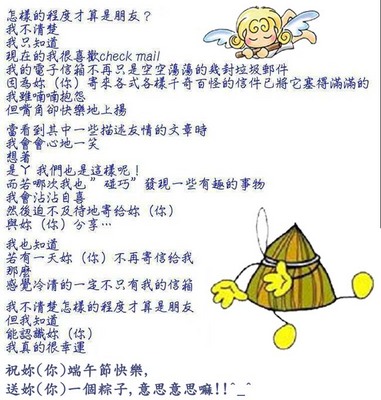 怎樣的程度才算是朋友？
我不清楚
我只知道
現在的我很喜歡check mail
我的電子信箱不再只是空空蕩蕩的幾封垃圾郵件
因為妳（你）寄來各式各樣千奇百怪的信件已將它塞得滿滿的
我雖喃喃抱怨
但嘴角卻快樂地上揚
當看到其中一些描述友情的文章時
我會會心地一笑
想著
是ㄚ 我們也是這樣呢！
而若哪次我也”碰巧”發現一些有趣的事物
我會沾沾自喜
然後迫不及待地寄給妳（你）
與妳（你）分享…
我也知道
若有一天妳（你）不再寄信給我
那麼
感覺冷清的一定不只有我的信箱
我不清楚怎樣的程度才算是朋友
但我知道
能認識妳（你）
我真的很幸運
祝妳(你)端午節快樂,
送妳(你)一個粽子,意思意思嘛!!^_^